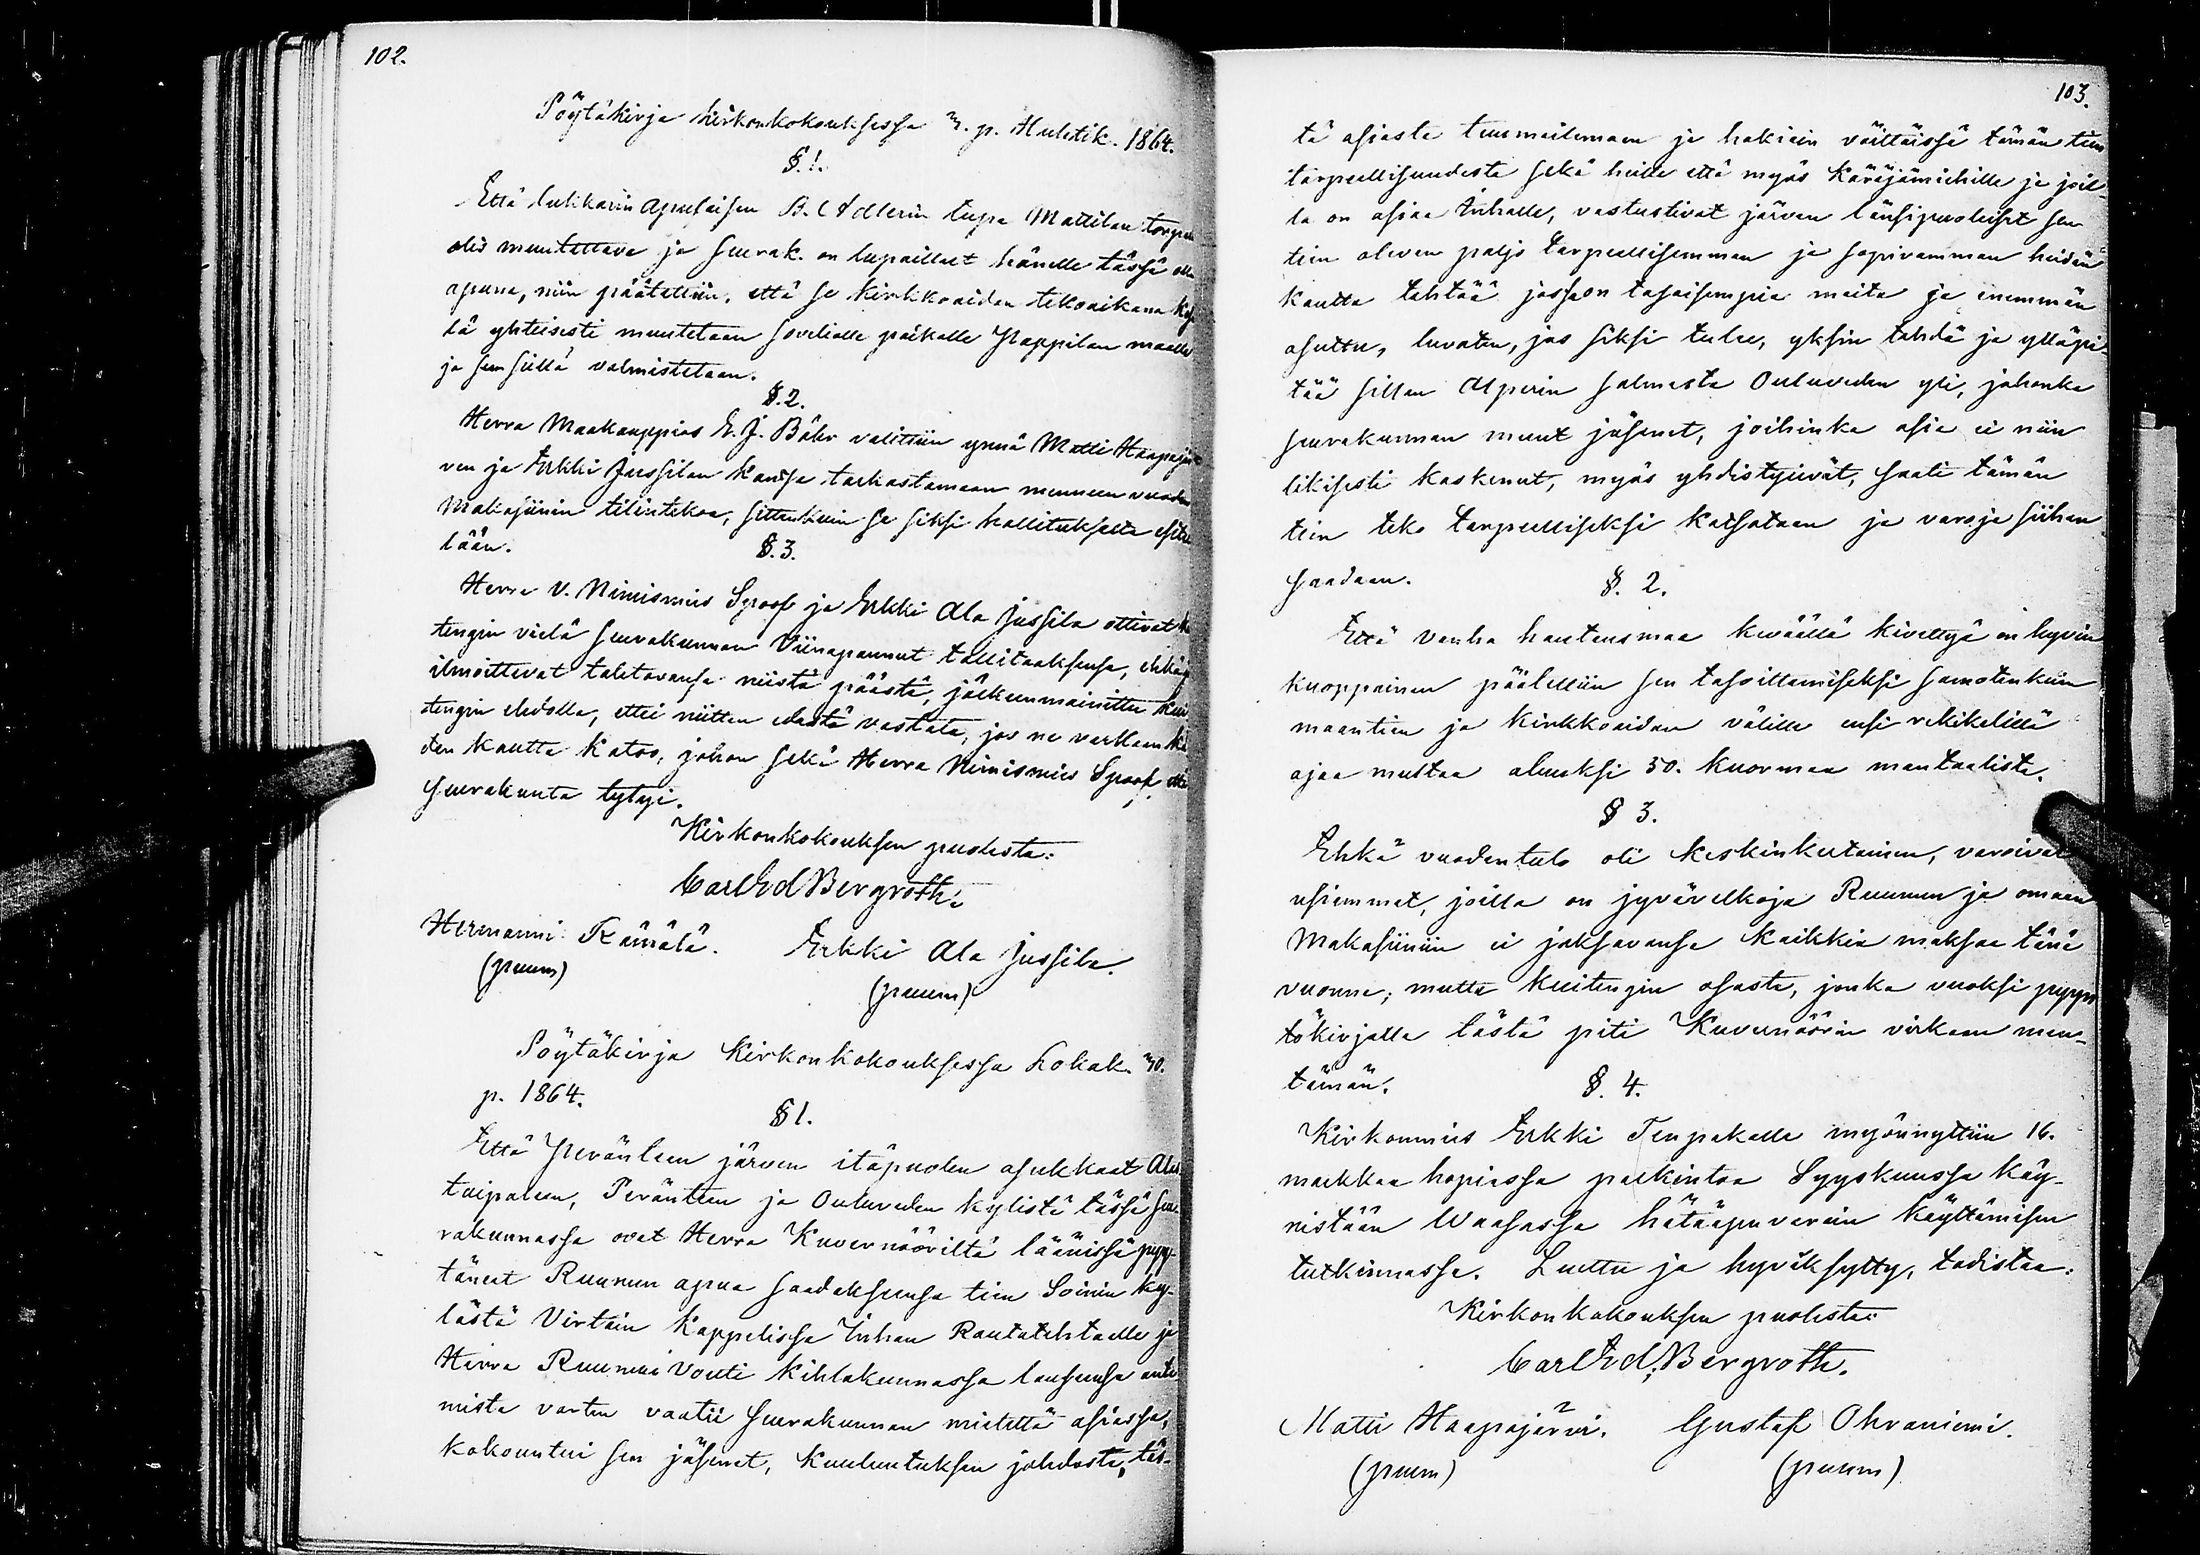 102.
Pöytäkirja kirkonkokouksessa 3. p. Huhtik. 1864.
§. 1.
Että lukkarin apulaisen B. Adlerin tupa Mattilan torpan
olis muutettava ja seurak. on lupaillut hänelle tässä olla
apuna, niin päätettiin, että se kirkkoaidan tekoaikana
tä yhteisesti muutetaan soveliaalle paikalle Pappilan maalle
ja sen sillä valmistetaan.
§. 2.
Herra Maakauppias E. J. Bähr valittiin ynnä Matti Haapajär
ven ja Erkki Jussilan kanssa tarkastamaan menneen vuoden
Makasiinin tilintekoa, sittenkuin se siksi hallitukselta esitel
lään.
§. 3.
Herra V. Nimismies Sproof ja Erkki Ala Jussila ottivat
tengin vielä seurakunnan Viinapannut tallitaaksensa, ehkä
ilmoittavat tahtovansa niistä päästä, jälkeenmainittu kui
tengin ehdolla, ettei niitten edestä vastata, jos ne varkaan kä
den kautta katoo, johon sekä Herra Nimismies Sproof että
seurakunta tytyi.
Kirkonkokouksen puolesta:
Carl Ed Bergroth.
Hermanni Rämälä. Erkki Ala Jussila.
(puum) (puum)
Pöytäkirja Kirkonkokouksessa Lokak. 30.
p. 1864.
§ 1.
Että Peränteen järven itäpuolen asukkaat Alas
taipaleen, Peränteen ja Ouluveden kylistä tässä seu
rakunnassa ovat Herra Kuvernööriltä läänissä pyy-
täneet Ruunun apua saadaksensa tien Soinin ky-
lästä Virtain Kappelissa Inhan Rautatehtaalle ja
Herra Ruunun Vouti kihlakunnassa lausunsa anta
mista varten vaatii seurakunnan mielettä asiassa,
kokountui sen jäsenet, kuuluutuksen johdosta, täs-
103.
tä asiasta tuumailemaan ja hakiain väittäissä tämän tien
tarpeellisuudesta sekä heille että myös käräjämiehille ja joil-
la on asiaa Inhalle, vastustivat järven länsipuoleiset sen
tien olevan paljo tarpeellisemman ja sopivamman heidän
kautta tehtää jossa on tasaisempia maita ja enemmän
asuttu, luvaten, jos siksi tulee, yksin tehdä ja ylläpi-
tää sillan Alperin salmesta Ouluveden yli, johonka
seurakunnan muut jäsenet, joihinka asia ei niin
likisesti koskenut, myös yhdistyivät, saati tämän
tien teko tarpeelliseksi katsotaan ja varoja siihen
saadaan.
§. 2.
Että vanha hautausmaa keväällä kivettyä on hyvin
kuoppainen päätettiin sen tasoittamiseksi samatenkuin
maantien ja kirkkoaidan välille ensi rekikelillä
ajaa multaa aluksi 50. kuormaa mantaalista.
§ 3.
Ehkä vuodentulo oli keskinkertainen, varoivat
usiemmat, joilla on jyvävelkoja Ruunun ja omaan
Makasiiniin ei jaksavansa kaikkia maksaa tänä
vuonna; mutta kuitengin osasta, jonka vuoksi pyyn
tökirjalla tästä piti Kuvernöörin virkaan men-
tämän.
§. 4.
Kirkonmies Erkki Tenpakalle myönnyttiin 16.
markkaa hopiassa palkintoa Syyskuussa käy-
nistään Waasassa hätäapuvarain käyttämisen
tutkinnassa. Luettu ja hyväksytty, todistaa:
Kirkonkokouksen puolesta:
Carl Ed. Bergroth.
Matti Haapajärvi. Gustaf Ohraniemi.
(puum) (puum)